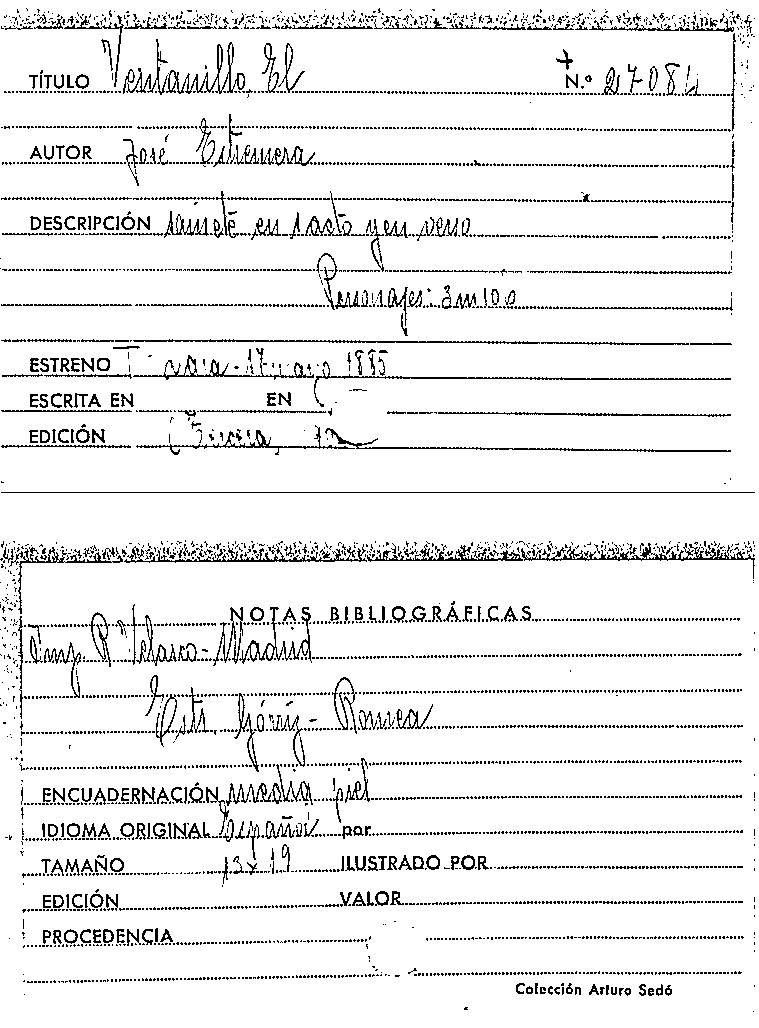 TÍTULO Ventanillo, El N.º 27084
AUTOR José Estremera
DESCRIPCIÓN sainete en 1 acto y en verso
Personajes: 3m 10o
ESTRENO 17 mayo 1885
ESCRITA EN EN
EDICIÓN
NOTAS BIBLIOGRÁFICAS
Imp. R. Velasco - Madrid
Estr. Górriz - Romea
ENCUADERNACIÓN media piel
IDIOMA ORIGINAL Español por
TAMAÑO 13x19 ILUSTRADO POR
EDICIÓN VALOR
PROCEDENCIA
Colección Arturo Sedó